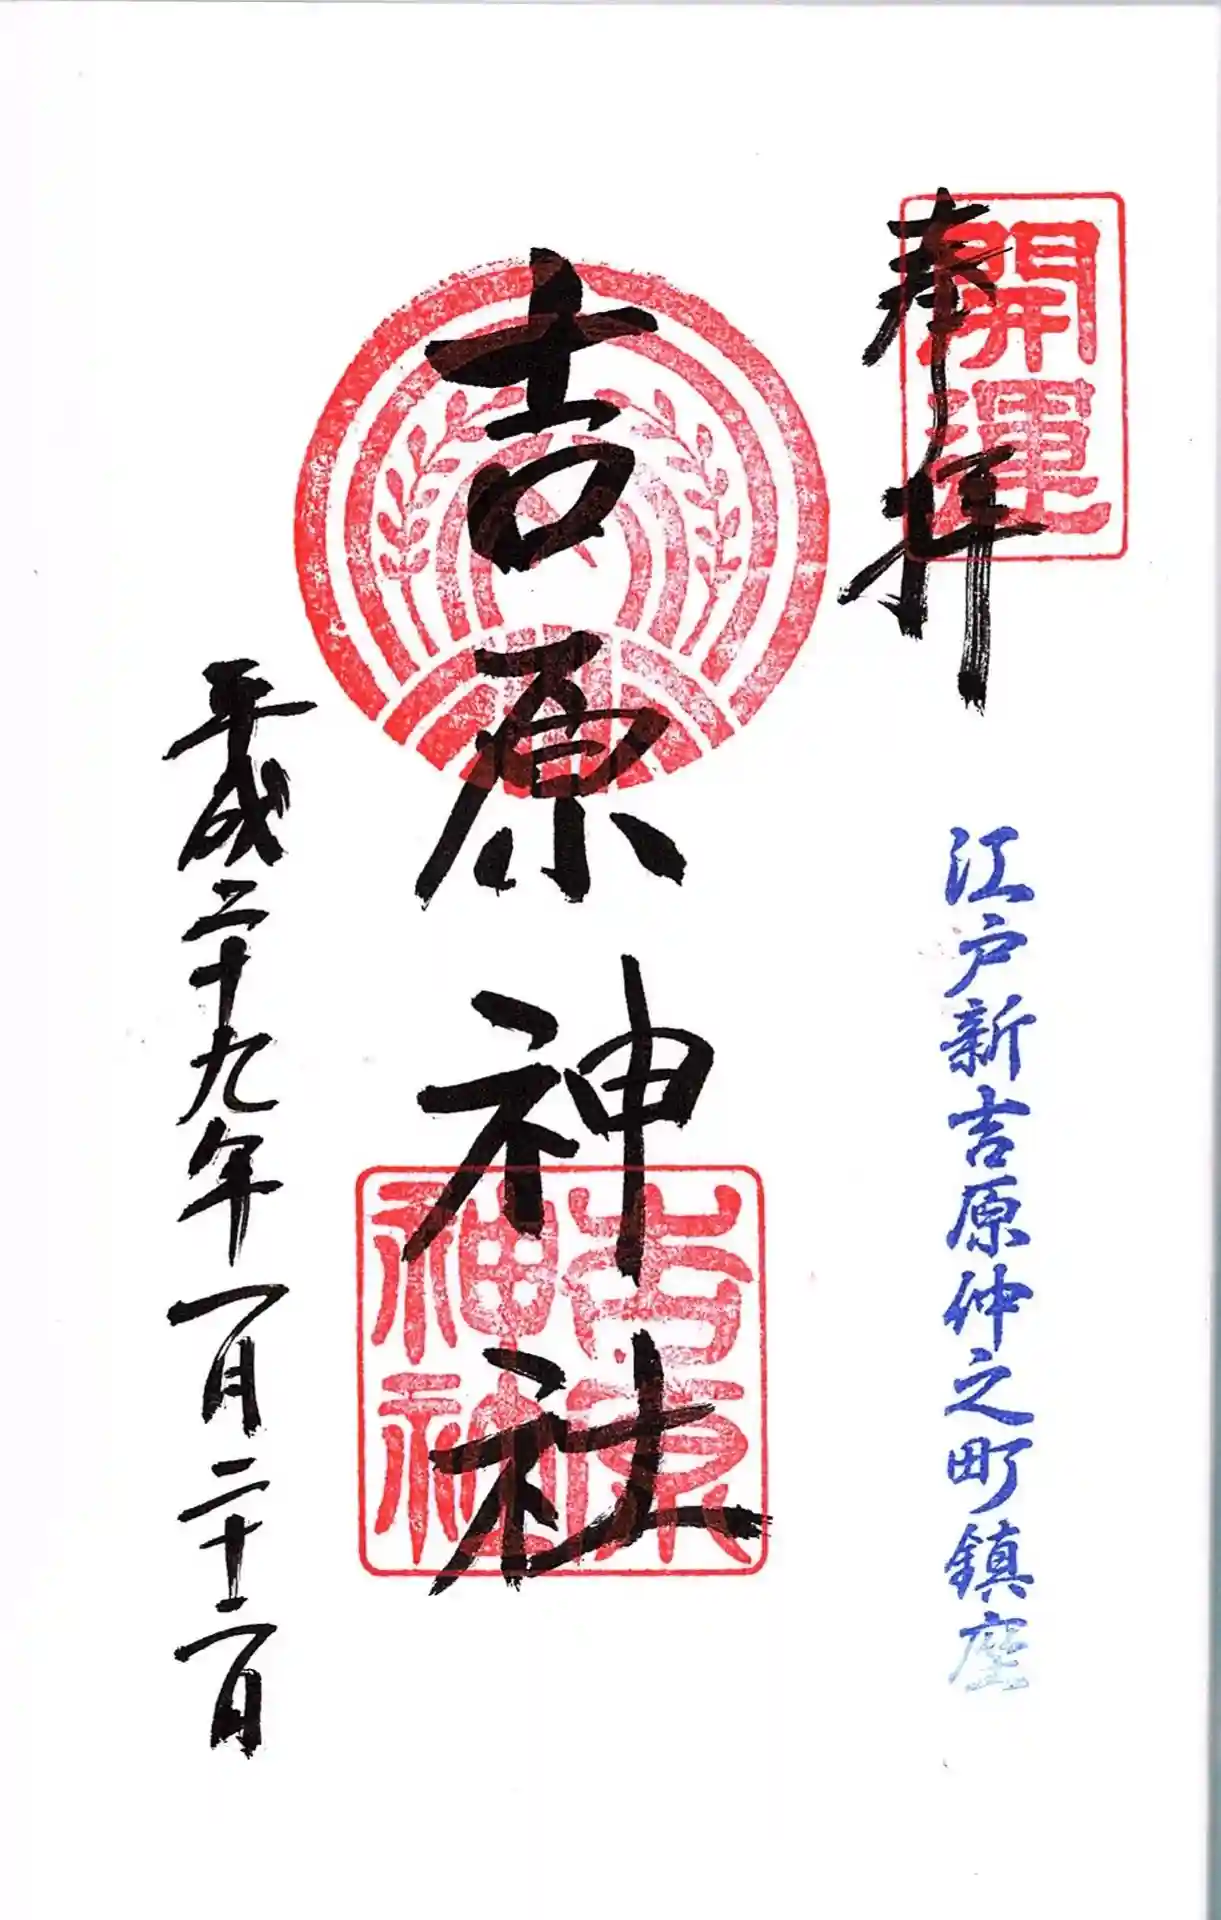 開運
奉拝
江戸新吉原仲之町鎮座
吉原神社
吉原
神社
平成二十九年一月二十二日